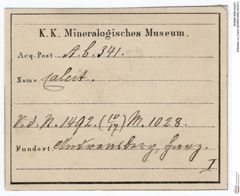 K. K. Mineralogisches Museum.
Acq.-Post A. b. 341.
Name Calcit.
V. d. N. 1492. (10/17) M. 1028.
Fundort Andreasberg, Harz.
I